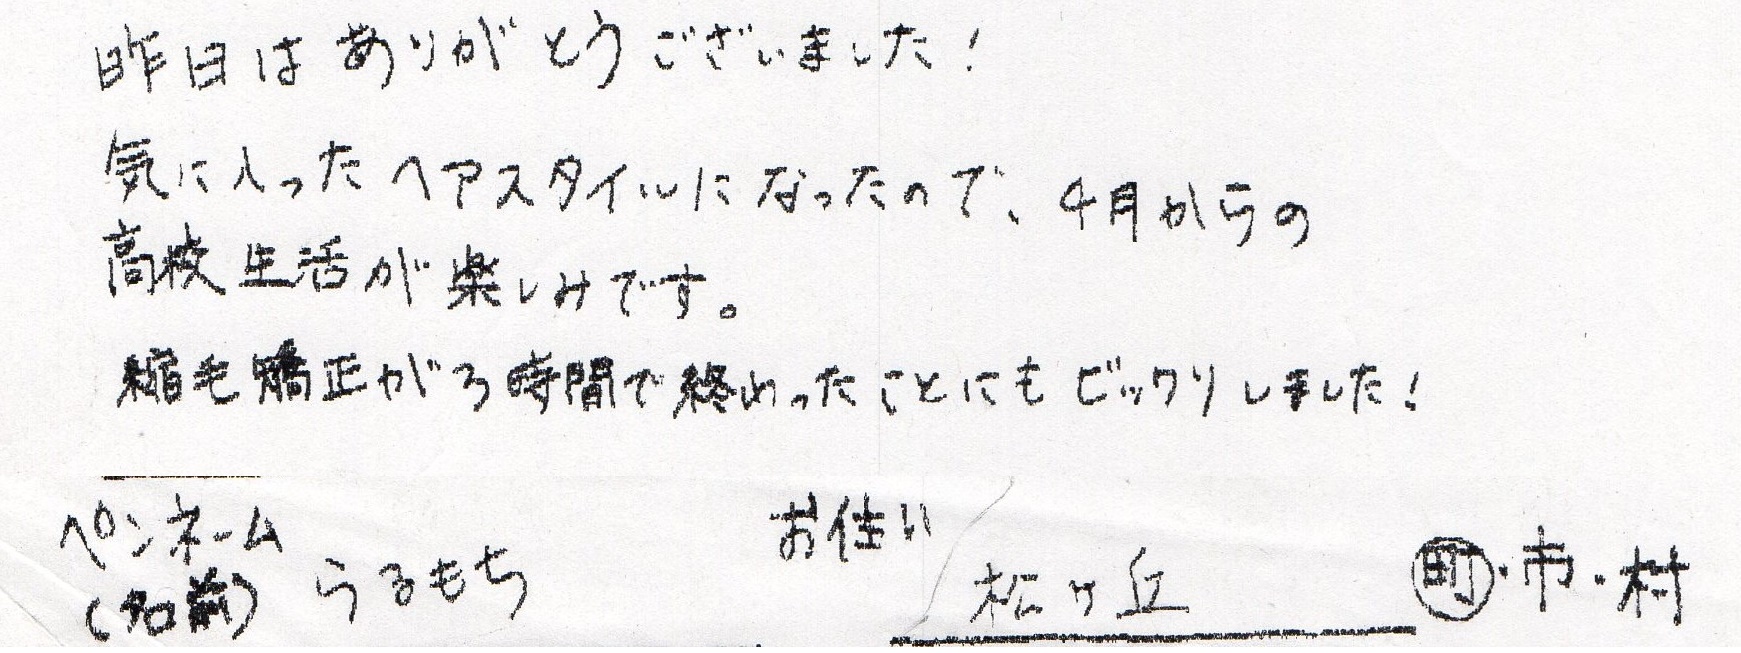 昨日はありがとうございました!
気に入ったヘアスタイルになったので、4月からの
高校生活が楽しみです。
縮毛矯正が3時間で終わったことにもビックリしました!
ペンネーム
(名前) らるもち
お住い 松ヶ丘 町・市・村